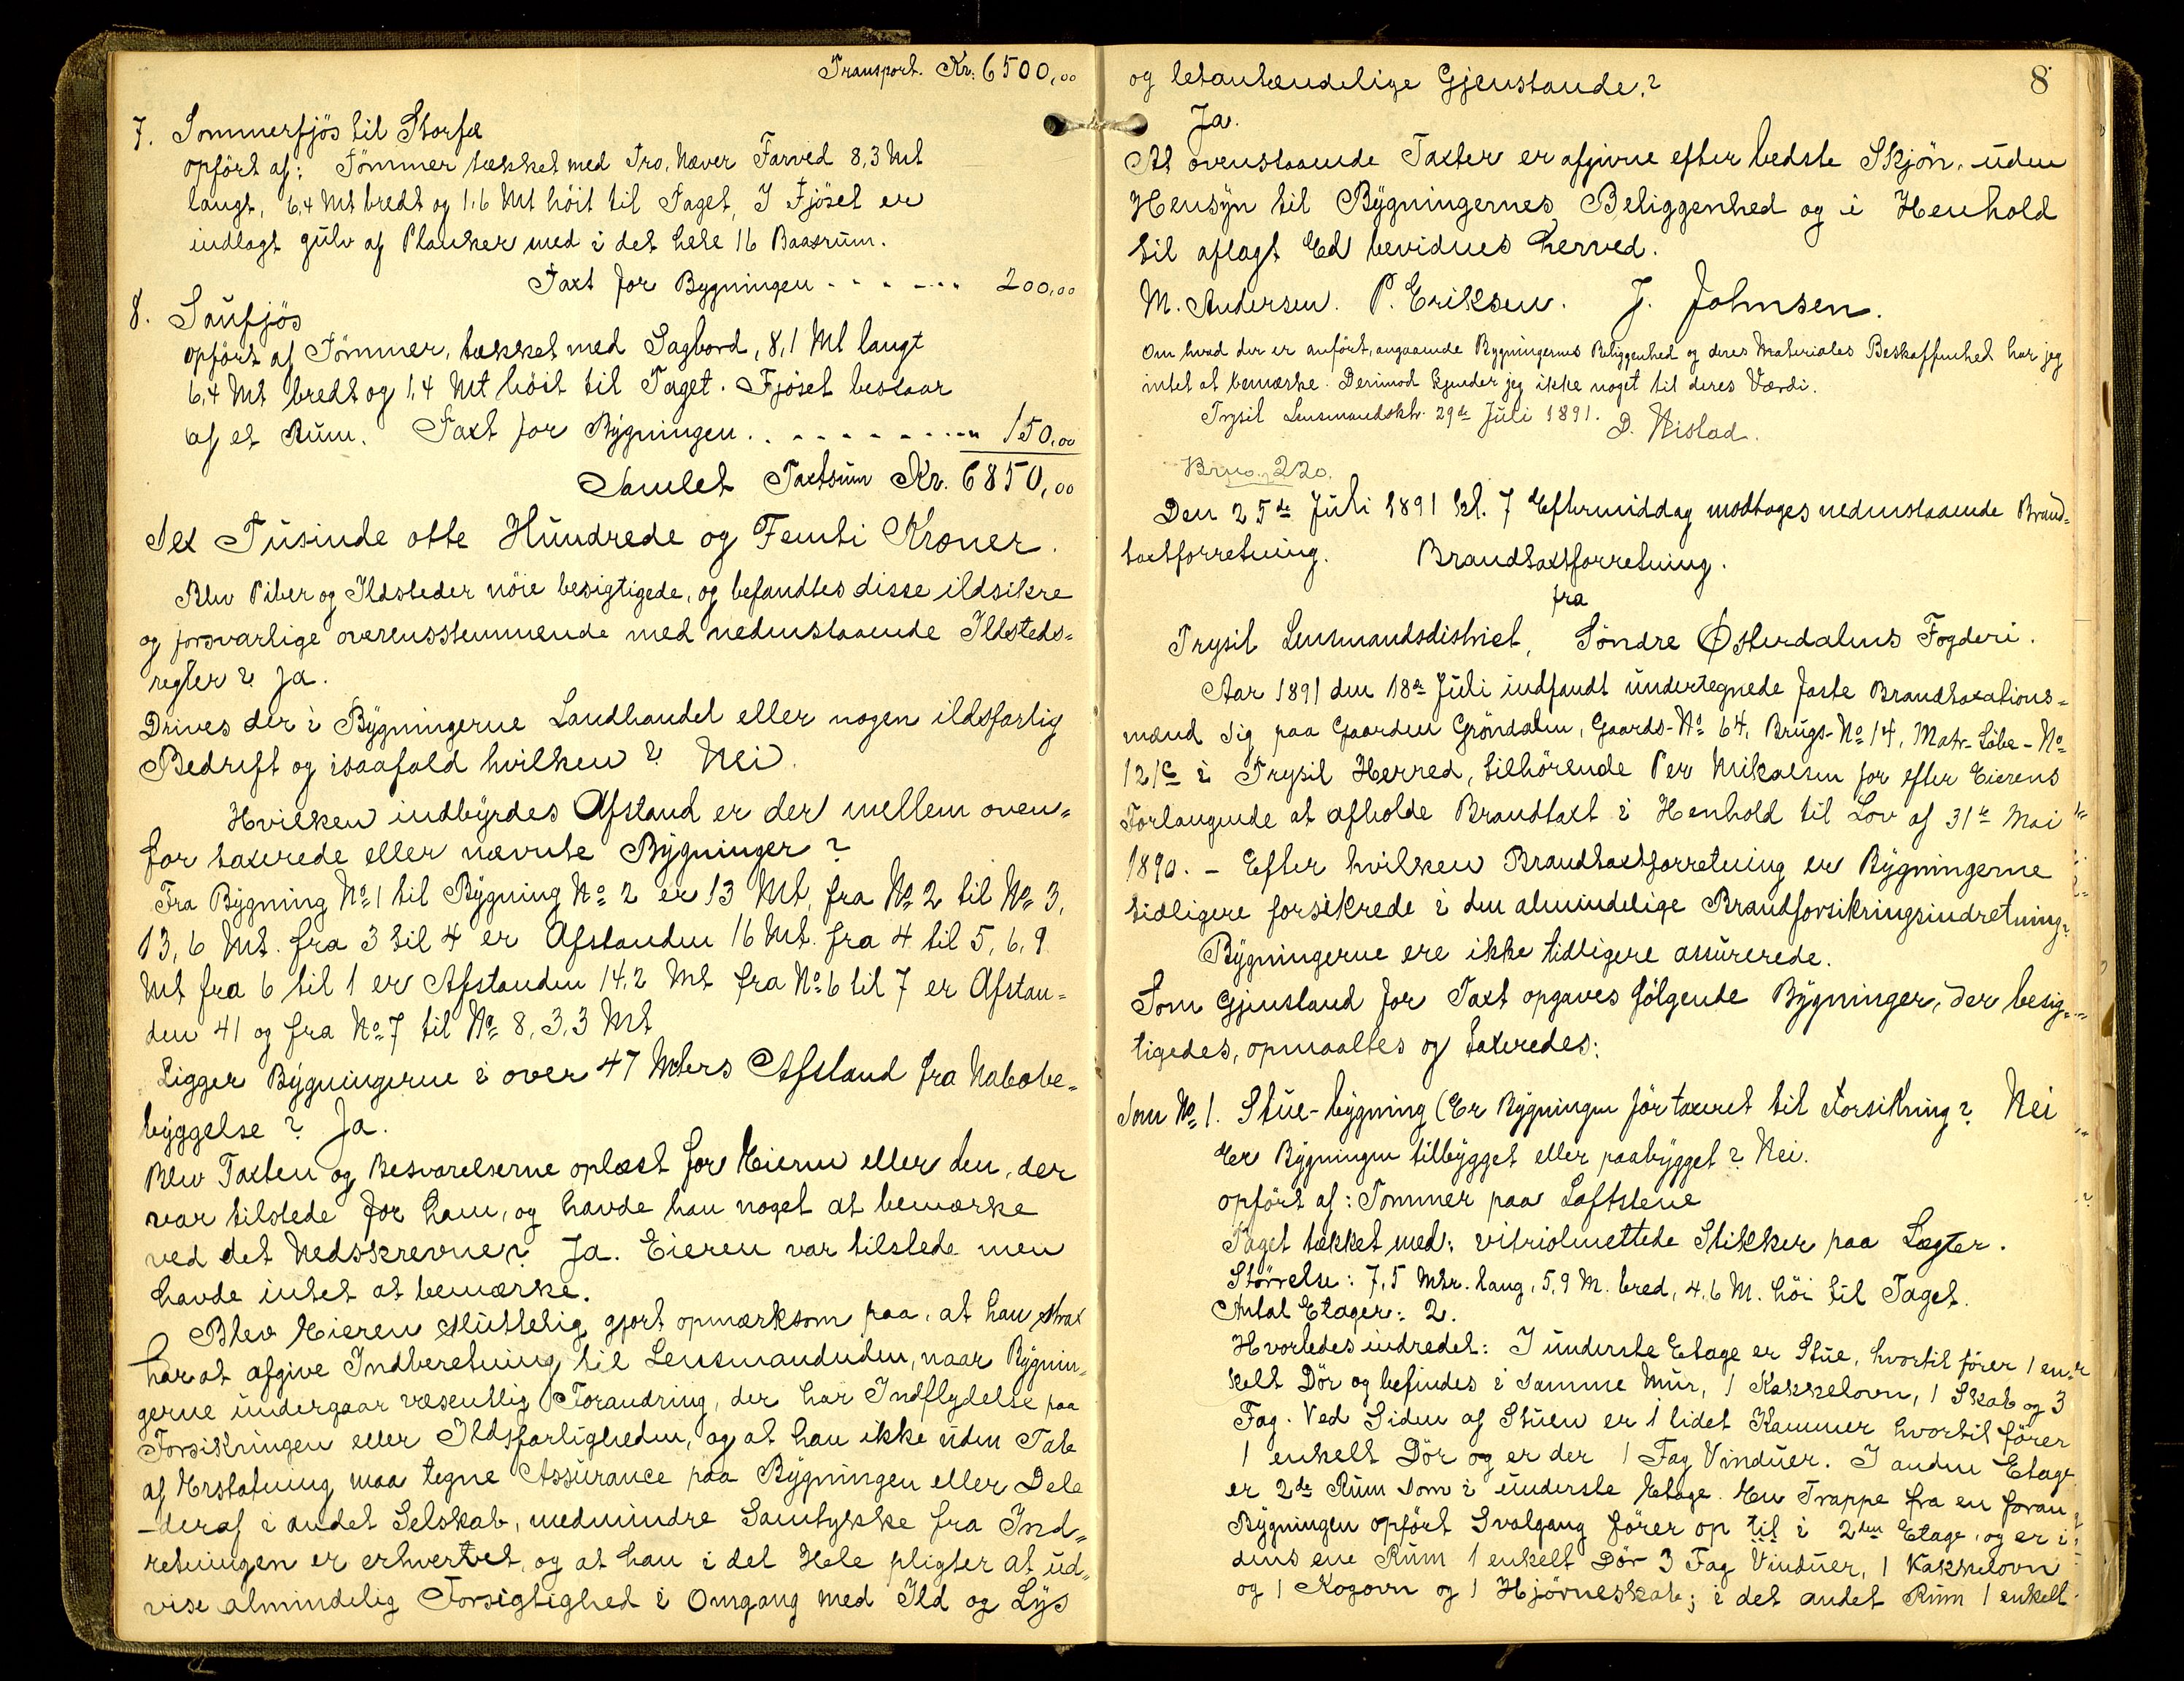 Transport. Kr: 6500,00
7. Sommerfjös til Storfæ
opfört af: Tömmer tækket med Tro, Næver Farved 8,3 Mt
langt, 6,4 Mt bredt og 1,6 Mt höit til Taget, I Fjöset er
indlagt gulv af Planker med i det hele 16 Baasrum.
Taxt for Bygningen - - - - - - - 200,00
8. Saufjös
opfört af Tömmer, tækket med Sagbord, 8,1 Mt langt
6,4 Mt bredt og 1,4 Mt höit til Taget. Fjöset bestaar
af et Rum. Taxt for Bygningen . . - - - - - - - - 150,00
Samlet Taxtsum Kr. 6850,00
Sex Tusinde otte Hundrede og Femti Kroner.
Blev Piber og Ildsteder nöie besigtigede, og befandtes disse ildsikre
og forsvarlige overensstemmende med nedenstaaende Ildsteds-
regler? Ja.
Drives der i Bygningerne Landhandel eller nogen ildsfarlig
Bedrift og isaafald hvilken? Nei.
Hvilken indbyrdes Afstand er der mellem oven-
for taxerede eller nævnte Bygninger?
Fra Bygning No 1 til Bygning No 2 er 13 Mt, fra No 2 til No 3,
13,6 Mt. fra 3 til 4 er Afstanden 16 Mt. fra 4 til 5, 6,9
Mt fra 6 til 1 er Afstanden 14,2 Mt fra No 6 til 7 er Afstan-
den 41 og fra No 7 til No 8, 3,3 Mt
Ligger Bygningerne i over 47 Meters Afstand fra Nabobe-
byggelse? Ja.
Blev Taxten og Besvarelserne oplæst for Eieren eller den, der
var tilstede for ham, og havde han noget at bemærke
ved det Nedskrevne? Ja. Eieren var tilstede men
havde intet at bemærke.
Blev Eieren sluttelig gjort opmærksom paa, at han strax
har at afgive Indberetning til Lensmandnden, naar Bygnin-
gerne undergaar væsentlig Forandring, der har Indflydelse paa
Forsikringen eller Ildsfarligheden, og at han ikke uden Tab
af Erstatning maa tegne Assurance paa Bygningen eller Dele
-deraf i andet Selskab, medmindre Samtykke fra Ind-
retningen er erhvervet, og at han i det Hele pligter at ud-
vise almindelig Forsigtighed i Omgang med Ild og Lys
8
og letantændelige Gjenstande?
Ja.
At ovenstaaende Taxter er afgivne efter bedste Skjön, uden
Hensyn til Bygningernes Beliggenhed og i Henhold
til aflagt Ed bevidnes herved.
M. Andersen. P. Eriksen. J. Johnsen.
Om hvad der er anfört, angaaende Bygningernes Beliggenhed og deres Materiales Beskaffenhed har jeg
intet at bemærke. Derimod kjender jeg ikke noget til deres Værdi.
Trysil Lensmandsktr. 29de Juli 1891. D. Nistad.
Brno. 220.
Den 25de Juli 1891 kl. 7 Eftermiddag modtoges nedenstaaende Brand-
taxtforretning. Brandtaxtforretning.
fra
Trysil Lensmandsdistrict, Söndre Österdalens Fogderi.
Aar 1891 den 18de Juli indfandt undertegnede faste Brandtaxations-
mænd sig paa Gaarden Gröndalen, Gaards-No 64, Brugs-No 14, Matr-Löbe-No
121c i Trysil Herred, tilhörende Per Mikaelsen for efter Eierens
Forlangende at afholde Brandtaxt i Henhold til Lov af 31te Mai
1890. - Efter hvilken Brandtaxtforretning er Bygningerne
tidligere forsikrede i den almindelige Brandforsikringsindretning?
Bygningerne ere ikke tidligere assurerede.
Som Gjenstand for Taxt opgaves fölgende Bygninger, der besig-
tigedes, opmaaltes og taxeredes:
Som No 1. Stue-bygning (Er Bygningen för taxeret til Forsikring? Nei
Er Bygningen tilbygget eller paabygget? Nei.
opfört af: Tömmer paa Loftstene
Taget tækket med: vitriolmettede Stikker paa Lægter.
Störrelse: 7,5 Mtr. lang, 5,9 M. bred, 4,6 M. höi til Taget.
Antal Etager: 2.
Hvorledes indredet: I underste Etage er Stue, hvortil förer 1 en-
kelt Dör og befindes i samme Mur, 1 Kakkelovn, 1 Skab og 3
Fag. Ved Siden af Stuen er 1 lidet Kammer hvortil förer
1 enkelt Dör og er der 1 Fag Vinduer. I anden Etage
er 2de Rum som i underste Etage. En Trappe fra en foran
Bygningen opfört Svalgang förer op til i 2den Etage, og er i
dens ene Rum 1 enkelt Dör 3 Fag Vinduer, 1 Kakkelovn
og 1 Kogovn og 1 Hjörneskab; i det andet Rum 1 enkelt